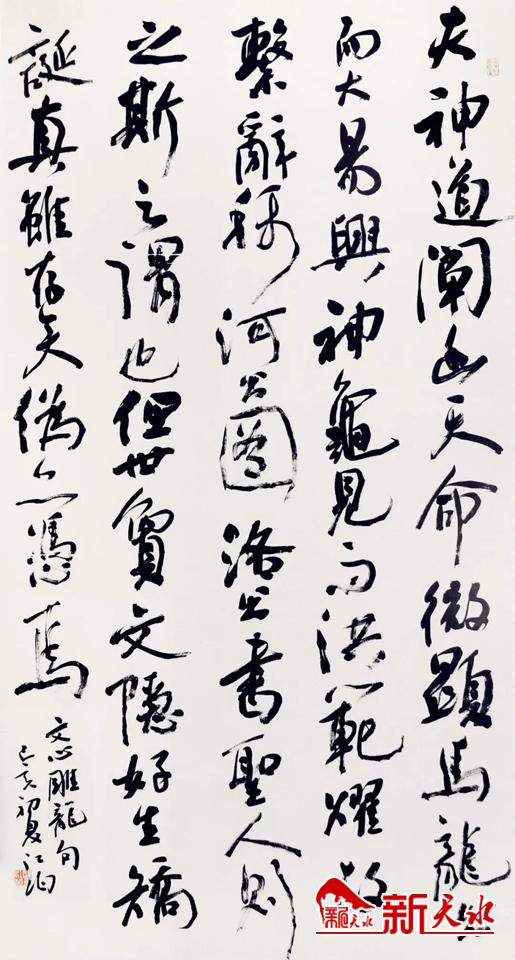 夫神道闡幽天命微顯馬龍出
而大易興神龜見而洪範耀故
繫辭稱河出圖洛出書聖人則
之斯之謂也但世夐文隱好生矯
誕真雖存矣偽亦憑焉
文心雕龍句
己亥初夏江
新天水